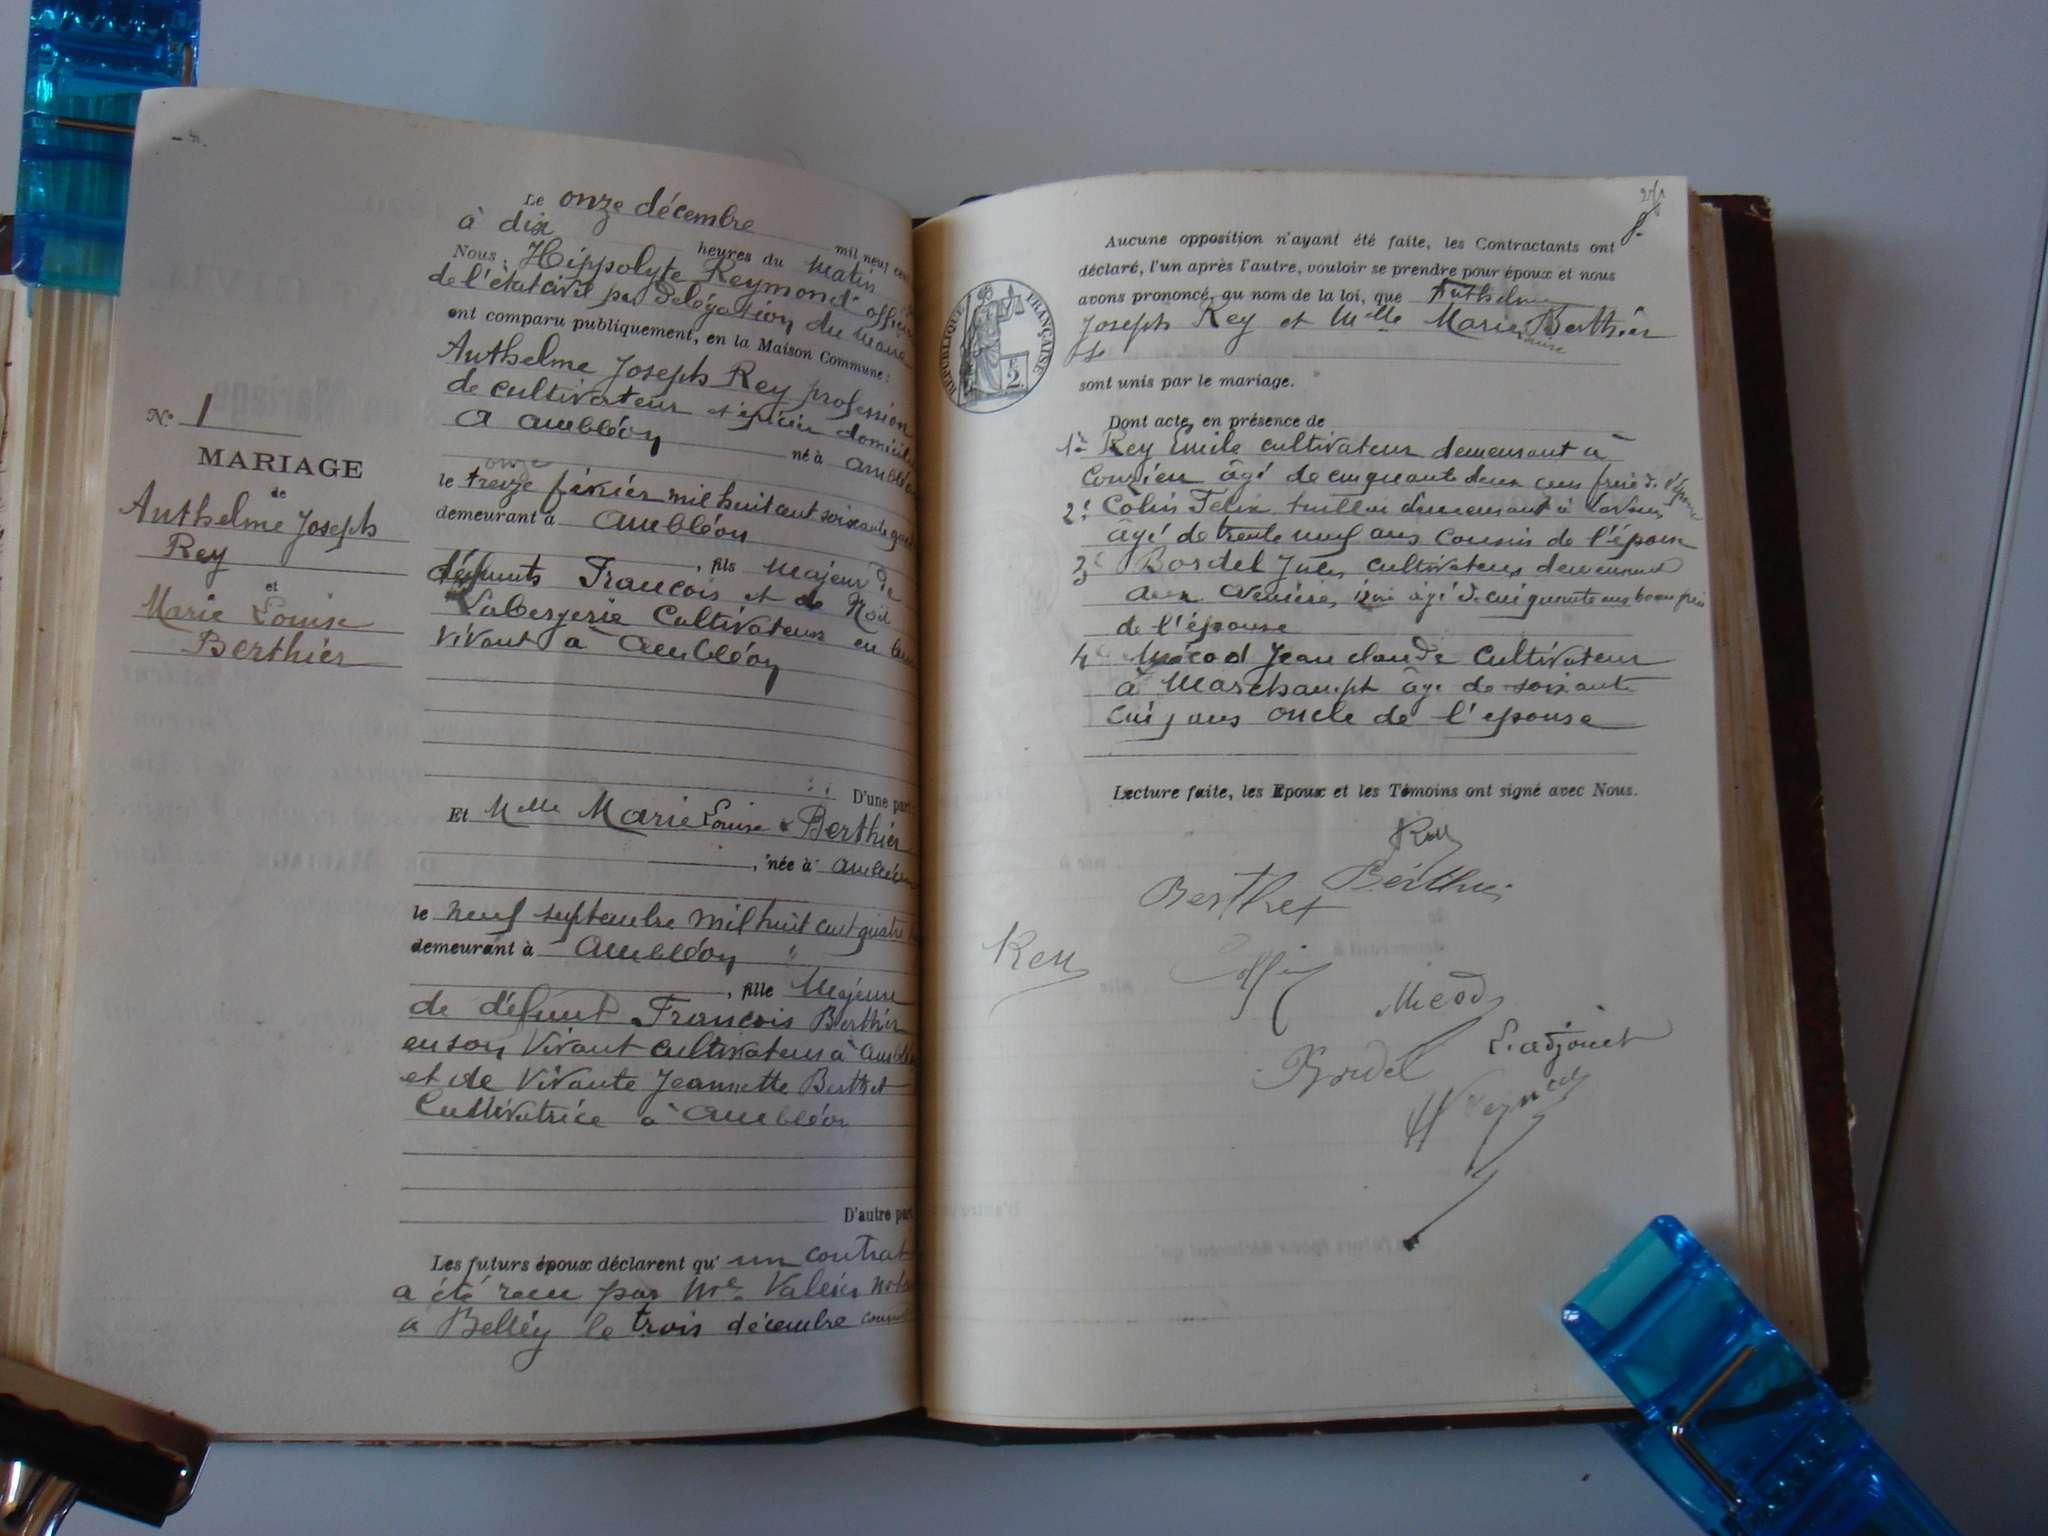 Le onze décembre mil neuf
à dix heures du matin
Nous, Hippolyte Reymond officier
de l'état civil par Délégation du Maire
ont comparu publiquement, en la Maison Commune :
Anthelme Joseph Rey profession
de cultivateur et épicier domicilié
a Ambléon né à
onze
le treize février mil huit cent soixante
demeurant à Ambléon
, fils Majeur de
défunts François et de
Labergerie Cultivateurs en leur
vivant à Ambléon
D'une part
Et Melle Marie Louise Berthier
, née à Ambléon
le neuf septembre mil huit cent quatre
demeurant à Ambléon
, fille Majeure
de défunt François Berthier
en son vivant cultivateur à
et de vivante Jeannette Berthet
Cultivatrice à Ambléon
D'autre part
Les futurs époux déclarent qu' un contrat
a été reçu par Me Valérier
a Belley le trois décembre
N° 1
MARIAGE
de
Anthelme Joseph
Rey
et
Marie Louise
Berthier
Aucune opposition n'ayant été faite, les Contractants ont
déclaré, l'un après l'autre, vouloir se prendre pour époux et nous
avons prononcé, au nom de la loi, que Anthelme
Joseph Rey et Melle Marie Berthier
Louise
sont unis par le mariage.
RÉPUBLIQUE FRANÇAISE
Dont acte, en présence de
1° Rey Emile cultivateur demeurant à
Conzieu âgé de cinquante deux ans frère de l'époux
2° Colin Felix demeurant à
âgé de trente neuf ans cousin de l'époux
3° Bordel Jules cultivateur demeurant
aux Avenières, isère âgé de cinquante ans beau frère
de l'épouse
4° Jean claude Cultivateur
à Marchampt âgé de soixante
cinq ans oncle de l'epouse
Lecture faite, les Epoux et les Témoins ont signé avec Nous.
Rey
Berthet Berthier
Rey
Bordel L'adjoint